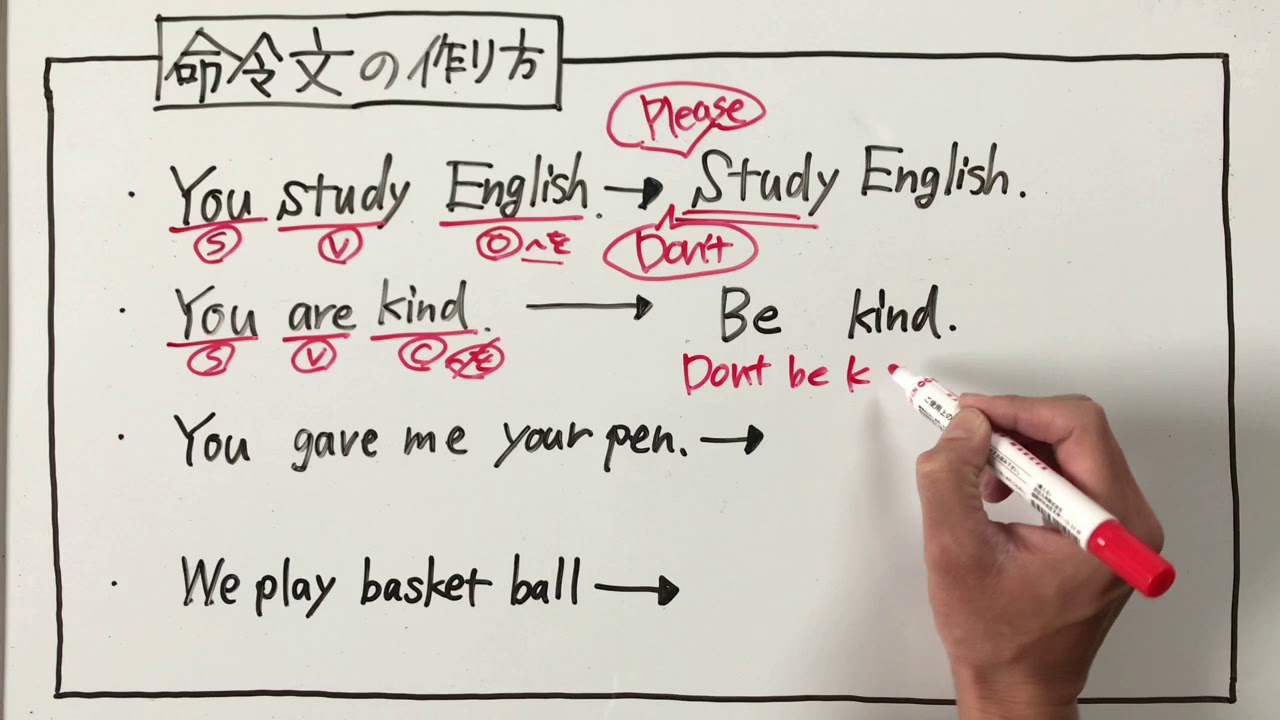 命令文の作り方
Please
You study English. → Study English.
S V O 〜を Don't
You are kind. → Be kind.
S V C
Dont be k
You gave me your pen. →
We play basket ball →